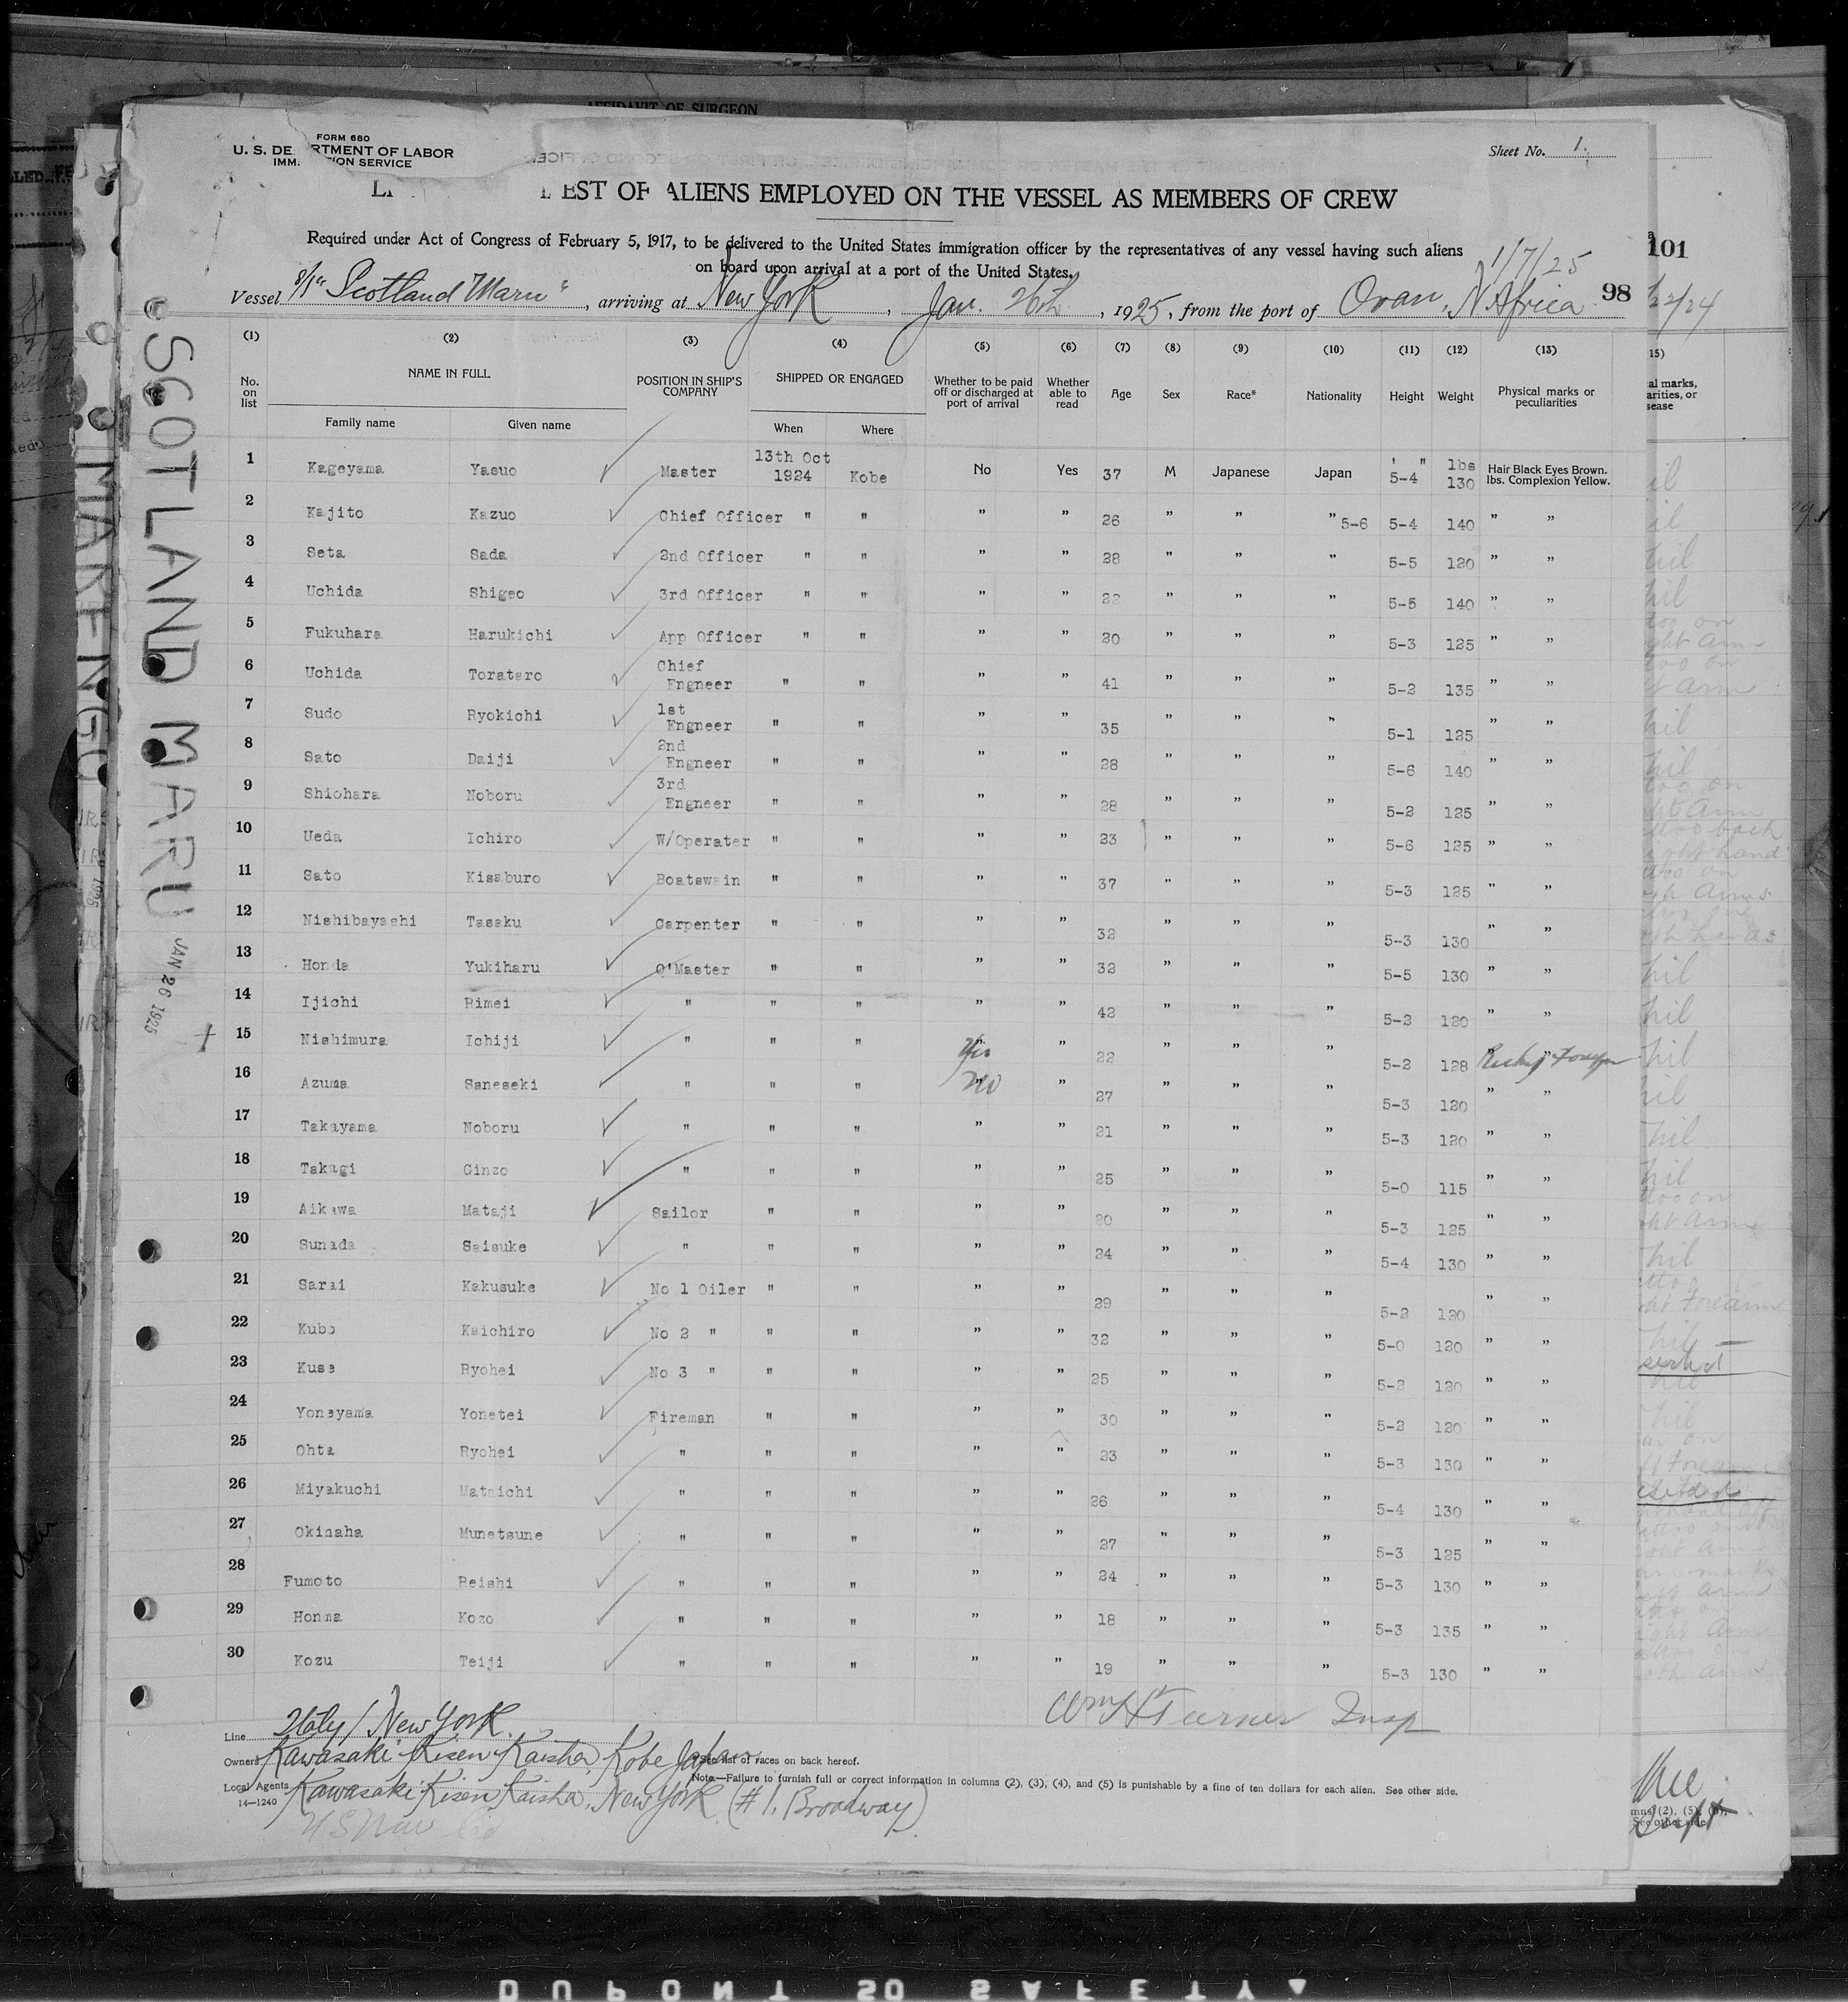 AFFIDAVIT OF SURGEON
FORM 680
U. S. DE RTMENT OF LABOR
IMM TION SERVICE
Sheet No. 1.
EST OF ALIENS EMPLOYED ON THE VESSEL AS MEMBERS OF CREW
Required under Act of Congress of February 5, 1917, to be delivered to the United States immigration officer by the representatives of any vessel having such aliens
on board upon arrival at a port of the United States.
1/7/25
101
Vessel "Scotland Maru", arriving at New York, Jan. 26th, 1925, from the port of Oran, N Africa 98
(1) (2) (3) (4) (5) (6) (7) (8) (9) (10) (11) (12) (13)
No. on list NAME IN FULL POSITION IN SHIP'S COMPANY SHIPPED OR ENGAGED Whether to be paid off or discharged at port of arrival Whether able to read Age Sex Race* Nationality Height Weight Physical marks or peculiarities
Family name Given name When Where
1 Kageyama Yasuo Master 13th Oct 1924 Kobe No Yes 37 M Japanese Japan 5-4 lbs 130 Hair Black Eyes Brown. lbs. Complexion Yellow.
2 Kajito Kazuo Chief Officer " " " " 26 " " " 5-6 5-4 140 " "
3 Seta Sada 2nd Officer " " " " 28 " " " 5-5 120 " "
4 Uchida Shigeo 3rd Officer " " " " 22 " " " 5-5 140 " "
5 Fukuhara Harukichi App Officer " " " " 20 " " " 5-3 125 " "
6 Uchida Torataro Chief Engneer " " " " 41 " " " 5-2 135 " "
7 Sudo Ryokichi 1st Engneer " " " " 35 " " " 5-1 125 " "
8 Sato Daiji 2nd Engneer " " " " 28 " " " 5-6 140 " "
9 Shiohara Noboru 3rd Engneer " " " " 28 " " " 5-2 125 " "
10 Ueda Ichiro W/Operater " " " " 23 " " " 5-6 125 " "
11 Sato Kisaburo Boatswain " " " " 37 " " " 5-3 125 " "
12 Nishibayashi Tasaku Carpenter " " " " 32 " " " 5-3 130 " "
13 Honda Yukiharu Q'Master " " " " 32 " " " 5-5 130 " "
14 Ijichi Rimei " " " " " 42 " " " 5-2 120 " "
15 Nishimura Ichiji " " " Yes " 22 " " " 5-2 128 " "
16 Azuma Saneseki " " " No " 27 " " " 5-3 120 " "
17 Takayama Noboru " " " " " 21 " " " 5-3 120 " "
18 Takagi Ginzo " " " " " 25 " " " 5-0 115 " "
19 Aikawa Mataji Sailor " " " " 20 " " " 5-3 125 " "
20 Sunada Saisuke " " " " " 24 " " " 5-4 130 " "
21 Sarai Kakusuke No 1 Oiler " " " " 29 " " " 5-2 120 " "
22 Kubo Kaichiro No 2 " " " " " 32 " " " 5-0 120 " "
23 Kuse Ryohei No 3 " " " " " 25 " " " 5-2 120 " "
24 Yoneyama Yonetei Fireman " " " " 30 " " " 5-2 120 " "
25 Ohta Ryohei " " " " " 23 " " " 5-3 130 " "
26 Miyakuchi Mataichi " " " " " 26 " " " 5-4 130 " "
27 Okinaha Munetsune " " " " " 27 " " " 5-3 125 " "
28 Fumoto Reishi " " " " " 24 " " " 5-3 130 " "
29 Honma Kozo " " " " " 18 " " " 5-3 135 " "
30 Kozu Teiji " " " " " 19 " " " 5-3 130 " "
Wm H Turner Insp
Line Italy / New York
Owners Kawasaki Kisen Kaisha, Kobe Japan
*See list of races on back hereof.
Note.—Failure to furnish full or correct information in columns (2), (3), (4), and (5) is punishable by a fine of ten dollars for each alien. See other side.
Local Agents Kawasaki Kisen Kaisha, New York (#1, Broadway)
14—1240
SCOTLAND MARU
JAN 26 1925
DUPONT SAFETY